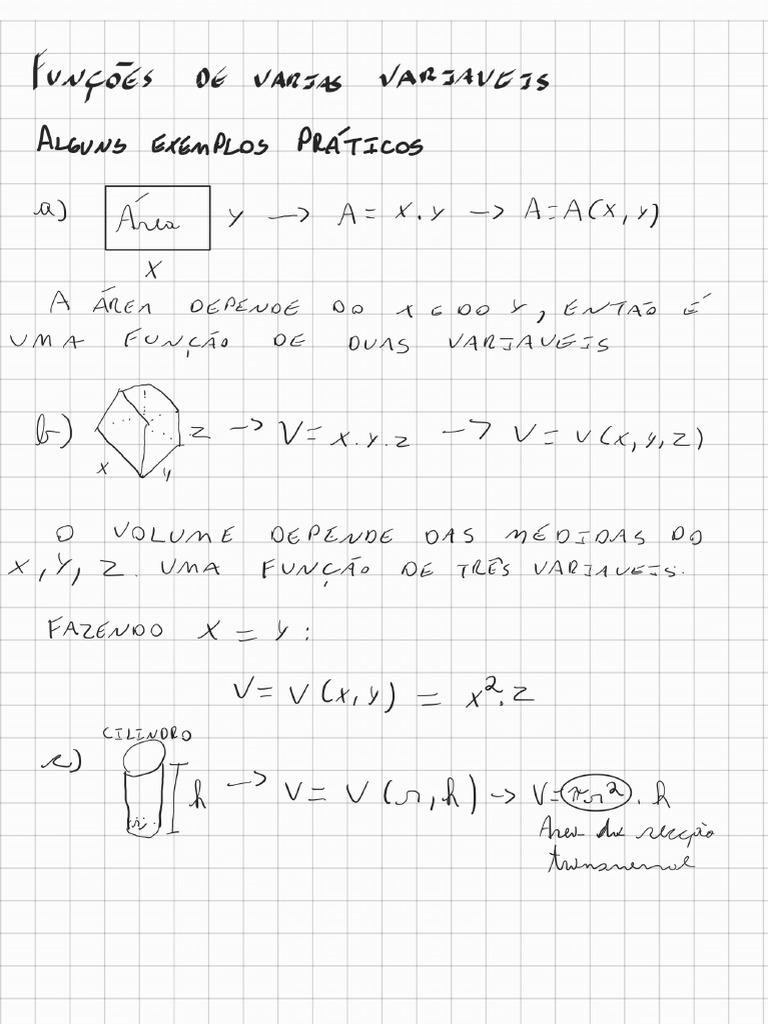 FUNÇÕES DE VARIAS VARIAVEIS
ALGUNS EXEMPLOS PRÁTICOS
a) Área y → A = x.y → A=A(x,y)
x
A ÁREA DEPENDE DO x E DO y, ENTÃO É
UMA FUNÇÃO DE DUAS VARIAVEIS
b) z → V= x.y.z → V = V(x,y,z)
x y
O VOLUME DEPENDE DAS MÉDIDAS DO
x, y, z. UMA FUNÇÃO DE TRÊS VARIAVEIS.
FAZENDO x = y:
V= V(x,y) = x².z
CILINDRO
c) r h → V= V(r,h) → V=πr².h
Area da secção
transversal